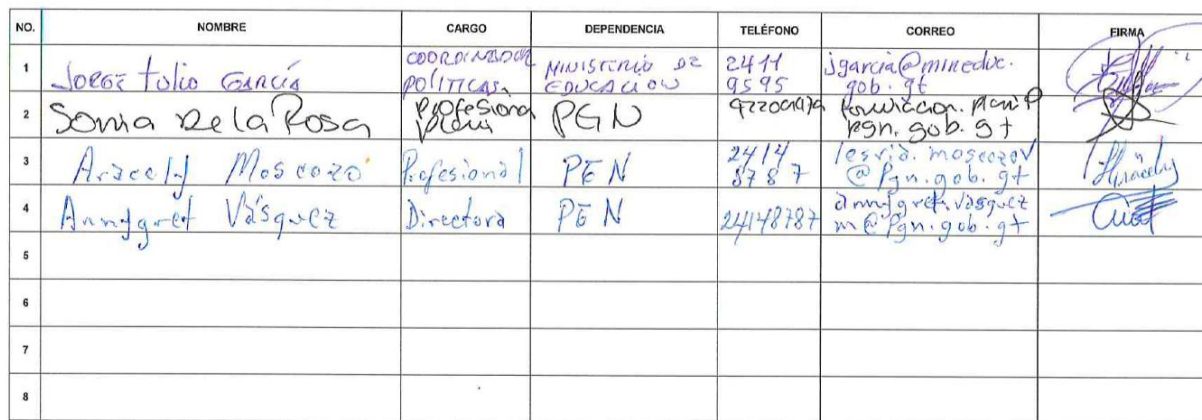 NO. NOMBRE CARGO DEPENDENCIA TELÉFONO CORREO FIRMA
1 Jorge Tulio García COORDINADOR POLITICAS MINISTERIO DE EDUCACION 2411 9595 jgarcia@mineduc.gob.gt
2 Sonia De la Rosa Profesional PGN pgn.gob.gt
3 Aracely Moscozo Profesional PGN 2414 8787 @pgn.gob.gt
4 Annygret Vásquez Directora PGN 24148787 annygret.vasquez m@pgn.gob.gt
5
6
7
8